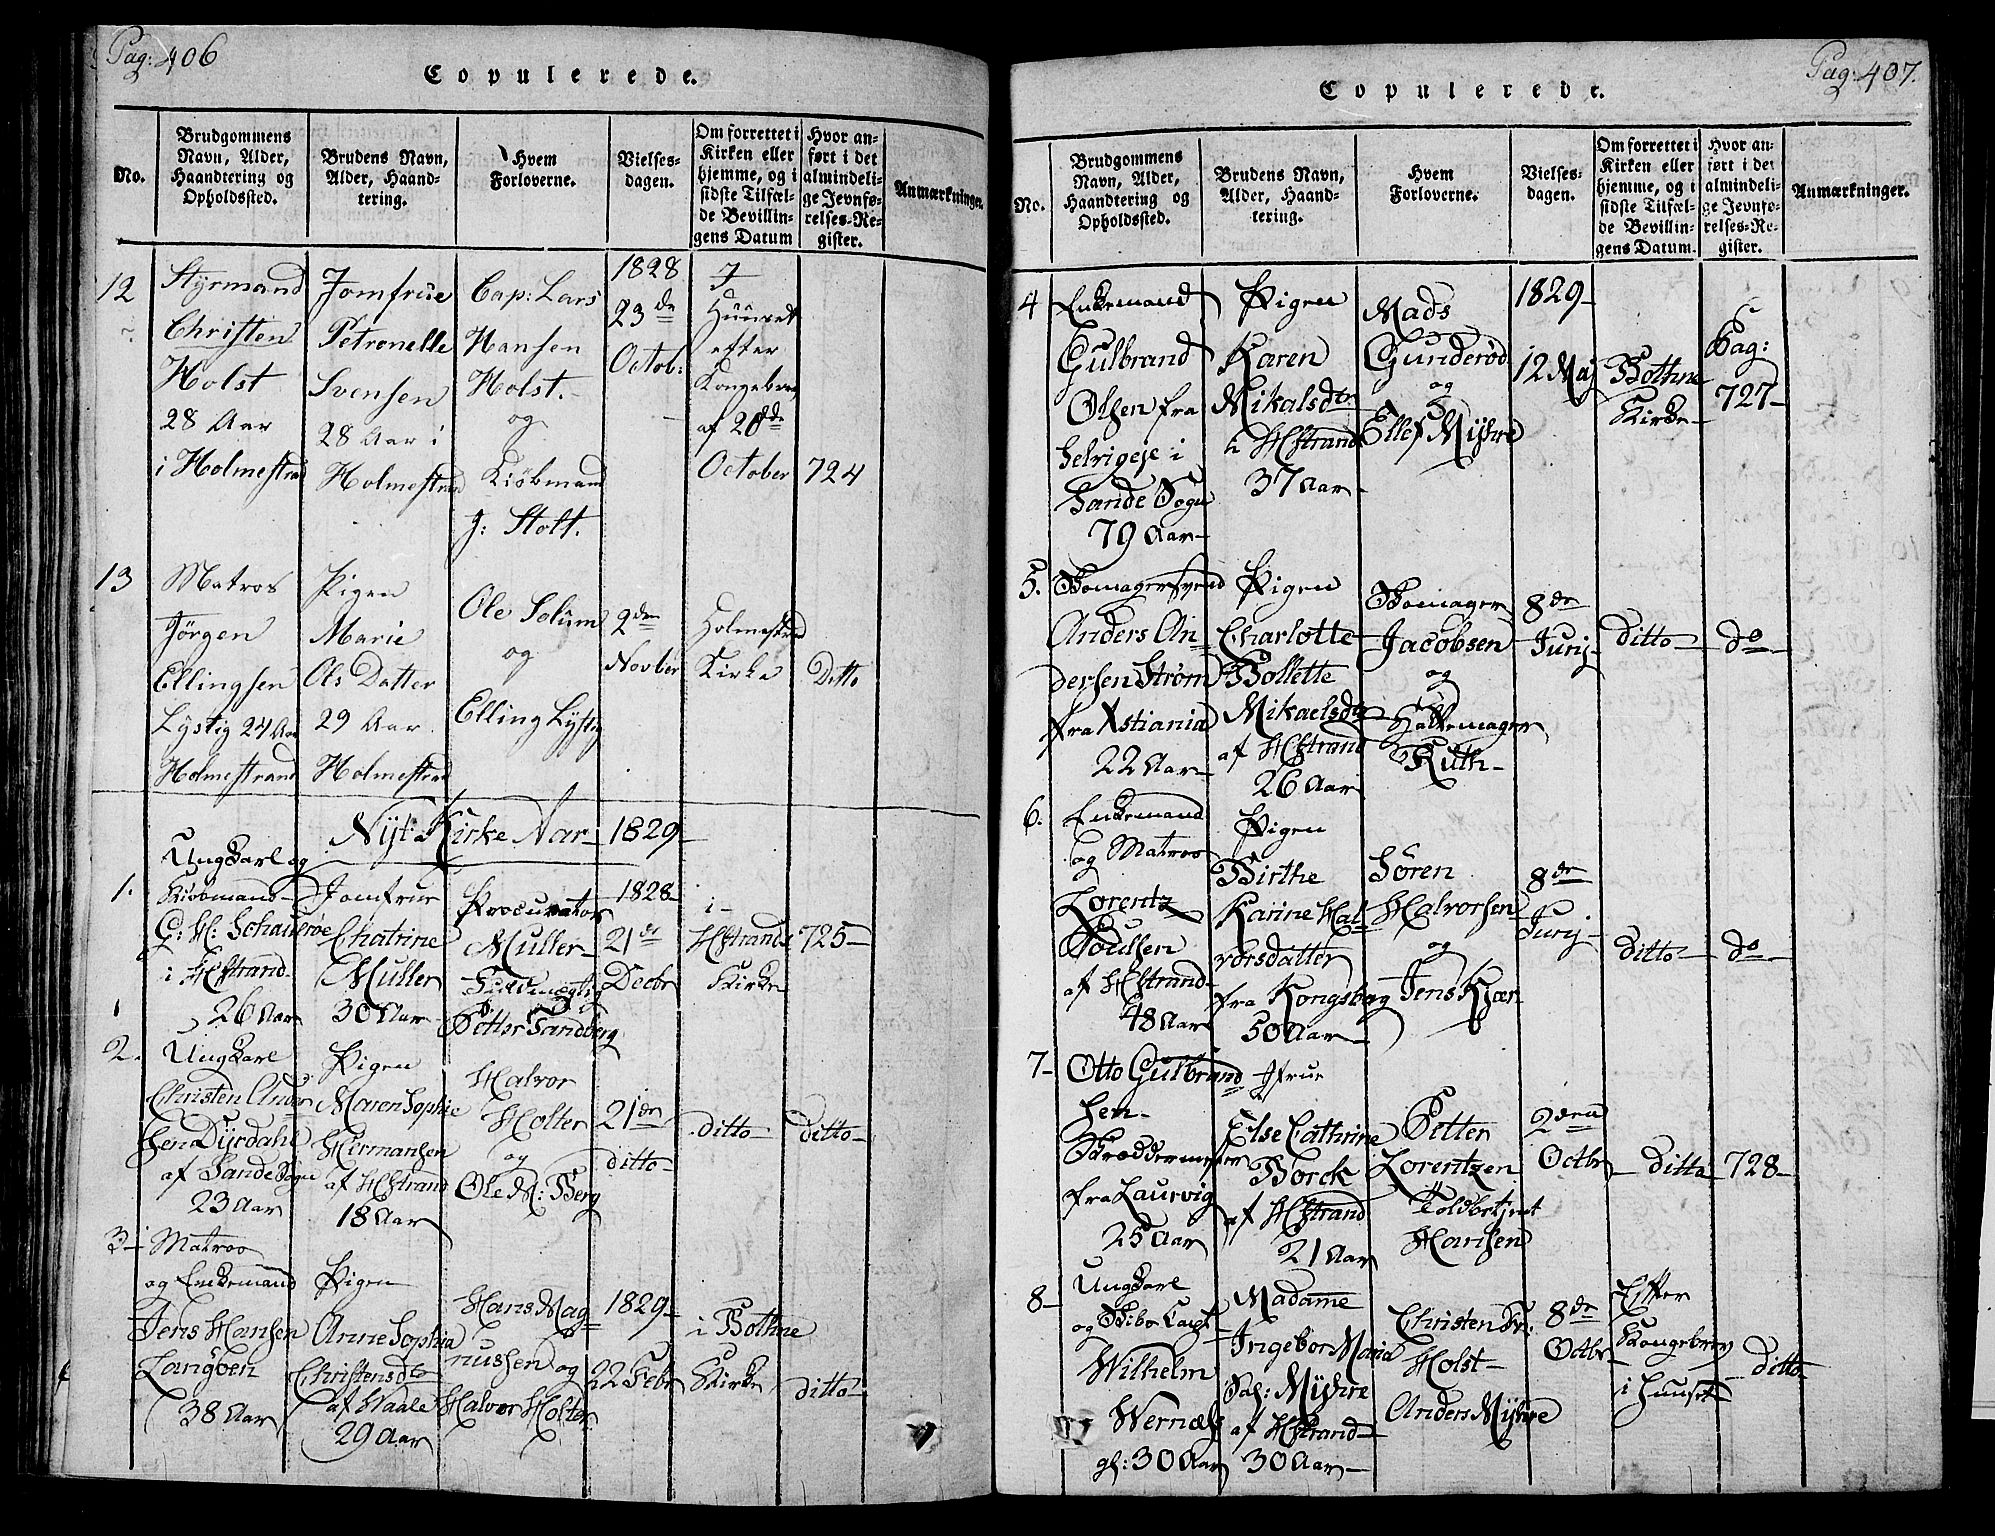 Pag: 406
Copulerede.
No.
Brudgommens
Navn, Alder,
Haandtering og
Opholdssted.
Brudens Navn,
Alder, Haand-
tering.
Hvem
Forloverne.
Vielses-
dagen.
Om forrettet i
Kirken eller
hjemme, og i
sidste Tilfæl-
de Bevillin-
gens Datum
Hvor an-
ført i det
almindeli-
ge Jevnfø-
relses-Re-
gister.
Anmærkninger.
12
Styrmand
Christen
Holst
28 Aar
i Holmestrand
Jomfrue
Petronelle
Svensen
28 Aar i
Holmestrand
Cap: Lars
Hansen
Holst.
og
Kiöbmand
J: Stolt.
1828
23de
Octob:
I
Huuset
efter
Kongebrev
af 20de
October
724
13
Matros
Jörgen
Ellingsen
Lystig 24 Aar
Holmestrand
Pigen
Marie
Ols Datter
29 Aar
Holmestrand
Ole Solum
og
Elling Lystig
2den
Novber
Holmestrand
Kirke
Ditto
Nÿt Kirke Aar 1829
1.
Ungkarl og
Kiöbmand
i HStrand
26 Aar
Jomfrue
Chatrine
Muller
30 Aar
Procurator
Muller
Petter Sandberg
1828
21de
Decbr
i
HStrands
Kirke
725
2.
Ungkarl
Christen Ander
sen Dÿrdahl
af Sande Sogn
23 Aar
Pigen
Maren Sophie
Hermansen
af HStrand
18 Aar
Halvor
Holter
og
Ole M: Berg
21de
ditto
ditto
ditto
3
Matros
og Enkemand
Jens Hansen
Langöen
38 Aar
Pigen
Anne Sophia
Christensdtr
af Waale
29 Aar
Hans Mag
nussen og
Halvor Holter
1829
22 Febr
i Bothne
Kirke
ditto
Pag: 407.
Copulerede.
No.
Brudgommens
Navn, Alder,
Haandtering og
Opholdssted.
Brudens Navn,
Alder, Haand-
tering.
Hvem
Forloverne.
Vielses-
dagen.
Om forrettet i
Kirken eller
hjemme, og i
sidste Tilfæl-
de Bevillin-
gens Datum.
Hvor an-
ført i det
almindeli-
ge Jevnfø-
relses-Re-
gister.
Anmærkninger.
4
Enkemand
Gulbrand
Olsen fra
Selvigeje i
Sande Sogn
79 Aar
Pigen
Karen
Mikalsdtr
i HStrand
37 Aar
Mads
Gunderød
og
Ellef Mÿhre
1829
12 Maj
Bothne
Kirke
Pag:
727
5.
Anders An
dersen Strøm
fra Xstiania
22 Aar
Pigen
Charlotte
Bollette
Mikaelsdtr
af HStrand
26 Aar
Jacobsen
og
Ruth
8de
Junj
ditto
do
6.
Enkemand
og Matros
Lorentz
Poulsen
af HStrand
48 Aar
Pigen
Birthe
Karine Hal
vorsdatter
fra Kongsberg
50 Aar
Sören
Halvorsen
og
Jens Kjær
8de
Junj
ditto
do
7
Otto Gulbrand
sen
Skreddermester
fra Laurvig
25 Aar
Jfrue
Else Cathrine
Borck
af HStrand
21 Aar
Petter
Lorentzen
Toldbetjent
Hansen
2den
Octbr
ditto
728
8
Ungkarl
Wilhelm
gl: 30 Aar
Madame
Ingebor Maria
Sal: Mÿhre
af HStrand
30 Aar
Christen Fr:
Holst
Anders Mÿhre
8de
Octbr
Efter
Kongebrev
i Huuset
ditto